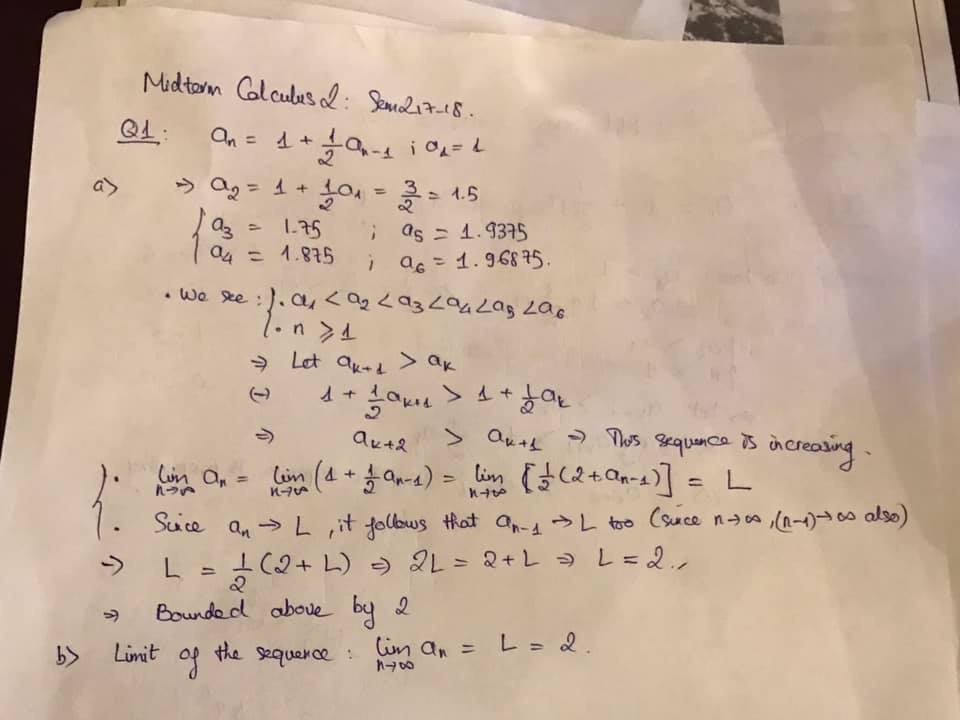 Midterm Calculus 2: Sem 2 17-18.
Q1: aₙ = 1 + 1/2 aₙ₋₁ ; a₁ = 1
a) → a₂ = 1 + 1/2 a₁ = 3/2 = 1.5
{ a₃ = 1.75 ; a₅ = 1.9375
a₄ = 1.875 ; a₆ = 1.96875.
• We see : { • a₁ < a₂ < a₃ < a₄ < a₅ < a₆
• n ⩾ 1
⇒ Let aₖ₊₁ > aₖ
(→) 1 + 1/2 aₖ₊₁ > 1 + 1/2 aₖ
⇒ aₖ₊₂ > aₖ₊₁ ⇒ This sequence is increasing.
{ • lim n→∞ aₙ = lim n→∞ (1 + 1/2 aₙ₋₁) = lim n→∞ [1/2 (2 + aₙ₋₁)] = L
• Since aₙ → L, it follows that aₙ₋₁ → L too (since n→∞, (n-1)→∞ also)
→ L = 1/2 (2 + L) ⇒ 2L = 2 + L ⇒ L = 2
⇒ Bounded above by 2
b) Limit of the sequence: lim n→∞ aₙ = L = 2.